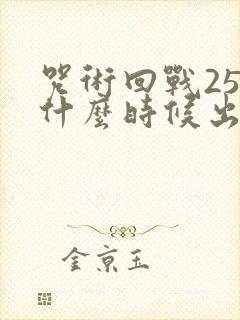 咒術回戰25
什麼時候出
金京玉